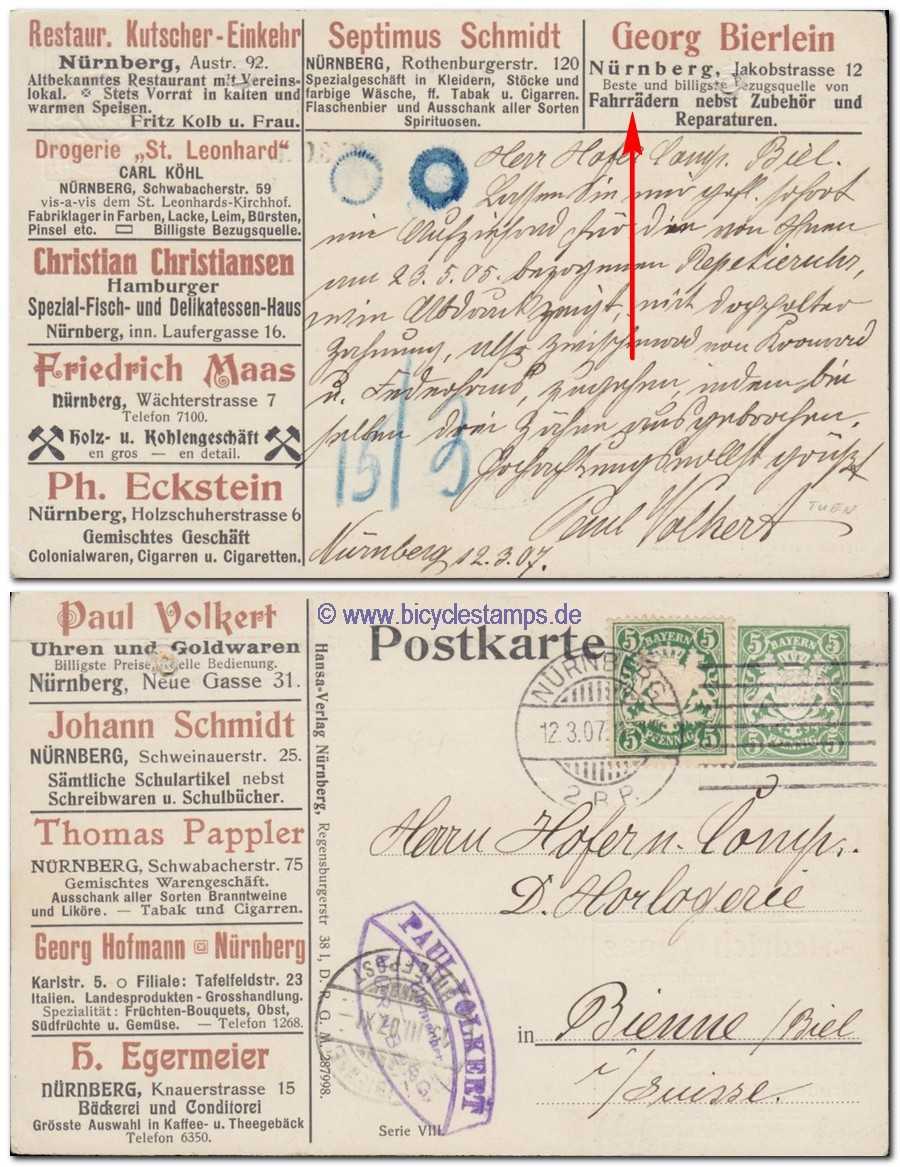 Restaur. Kutscher-Einkehr
Nürnberg, Austr. 92.
Altbekanntes Restaurant mit Vereins-
lokal. Stets Vorrat in kalten und
warmen Speisen.
Fritz Kolb u. Frau.
Septimus Schmidt
NÜRNBERG, Rothenburgerstr. 120
Spezialgeschäft in Kleidern, Stöcke und
farbige Wäsche, ff. Tabak u. Cigarren.
Flaschenbier und Ausschank aller Sorten
Spirituosen.
Georg Bierlein
Nürnberg, Jakobstrasse 12
Beste und billigste Bezugsquelle von
Fahrrädern nebst Zubehör und
Reparaturen.
Drogerie „St. Leonhard"
CARL KÖHL
NÜRNBERG, Schwabacherstr. 59
vis-a-vis dem St. Leonhards-Kirchhof.
Fabriklager in Farben, Lacke, Leim, Bürsten,
Pinsel etc. Billigste Bezugsquelle.
Christian Christiansen
Hamburger
Spezial-Fisch- und Delikatessen-Haus
Nürnberg, inn. Laufergasse 16.
Friedrich Maas
Nürnberg, Wächterstrasse 7
Telefon 7100.
Holz- u. Kohlengeschäft
en gros — en detail.
Ph. Eckstein
Nürnberg, Holzschuherstrasse 6
Gemischtes Geschäft
Colonialwaren, Cigarren u. Cigaretten.
Herr Hofer Comp. Biel.
Lassen Sie mir gefl. sofort
ein Aufziehrad für die von Ihnen
am 23.5.05. bezogenen Repetieruhr,
wie Abdruck zeigt, mit doppelter
Zahnung, also zwischenrad von Kronrad
u. Federhaus, zugehen, indem bei
selben drei Zähne ausgebrochen.
Hochachtungsvollst grüßt
Paul Volkert
Nürnberg 12.3.07.
15/3
TUEN
© www.bicyclestamps.de
Paul Volkert
Uhren und Goldwaren
Billigste Preise, Bedienung.
Nürnberg, Neue Gasse 31.
Johann Schmidt
NÜRNBERG, Schweinauerstr. 25.
Sämtliche Schulartikel nebst
Schreibwaren u. Schulbücher.
Thomas Pappler
NÜRNBERG, Schwabacherstr. 75
Gemischtes Warengeschäft.
Ausschank aller Sorten Branntweine
und Liköre. — Tabak und Cigarren.
Georg Hofmann Nürnberg
Karlstr. 5. o Filiale: Tafelfeldstr. 23
Italien. Landesprodukten - Grosshandlung.
Spezialität: Früchten-Bouquets, Obst,
Südfrüchte u. Gemüse. — Telefon 1268.
H. Egermeier
NÜRNBERG, Knauerstrasse 15
Bäckerei und Conditorei
Grösste Auswahl in Kaffee- u. Theegebäck
Telefon 6350.
Hansa-Verlag Nürnberg, Regensburgerstr 38 I, D. R. G. M. 287998.
Postkarte
5 BAYERN 5
5 PFENNIG 5
5 BAYERN 5
5 PFENNIG 5
NÜRNBERG
12.3.07.
2 B.P.
Herrn Hofer u. Comp.
D. Horlogerie
in Bienne/Biel
i/Suisse.
PAUL VOLKERT
Serie VIII.